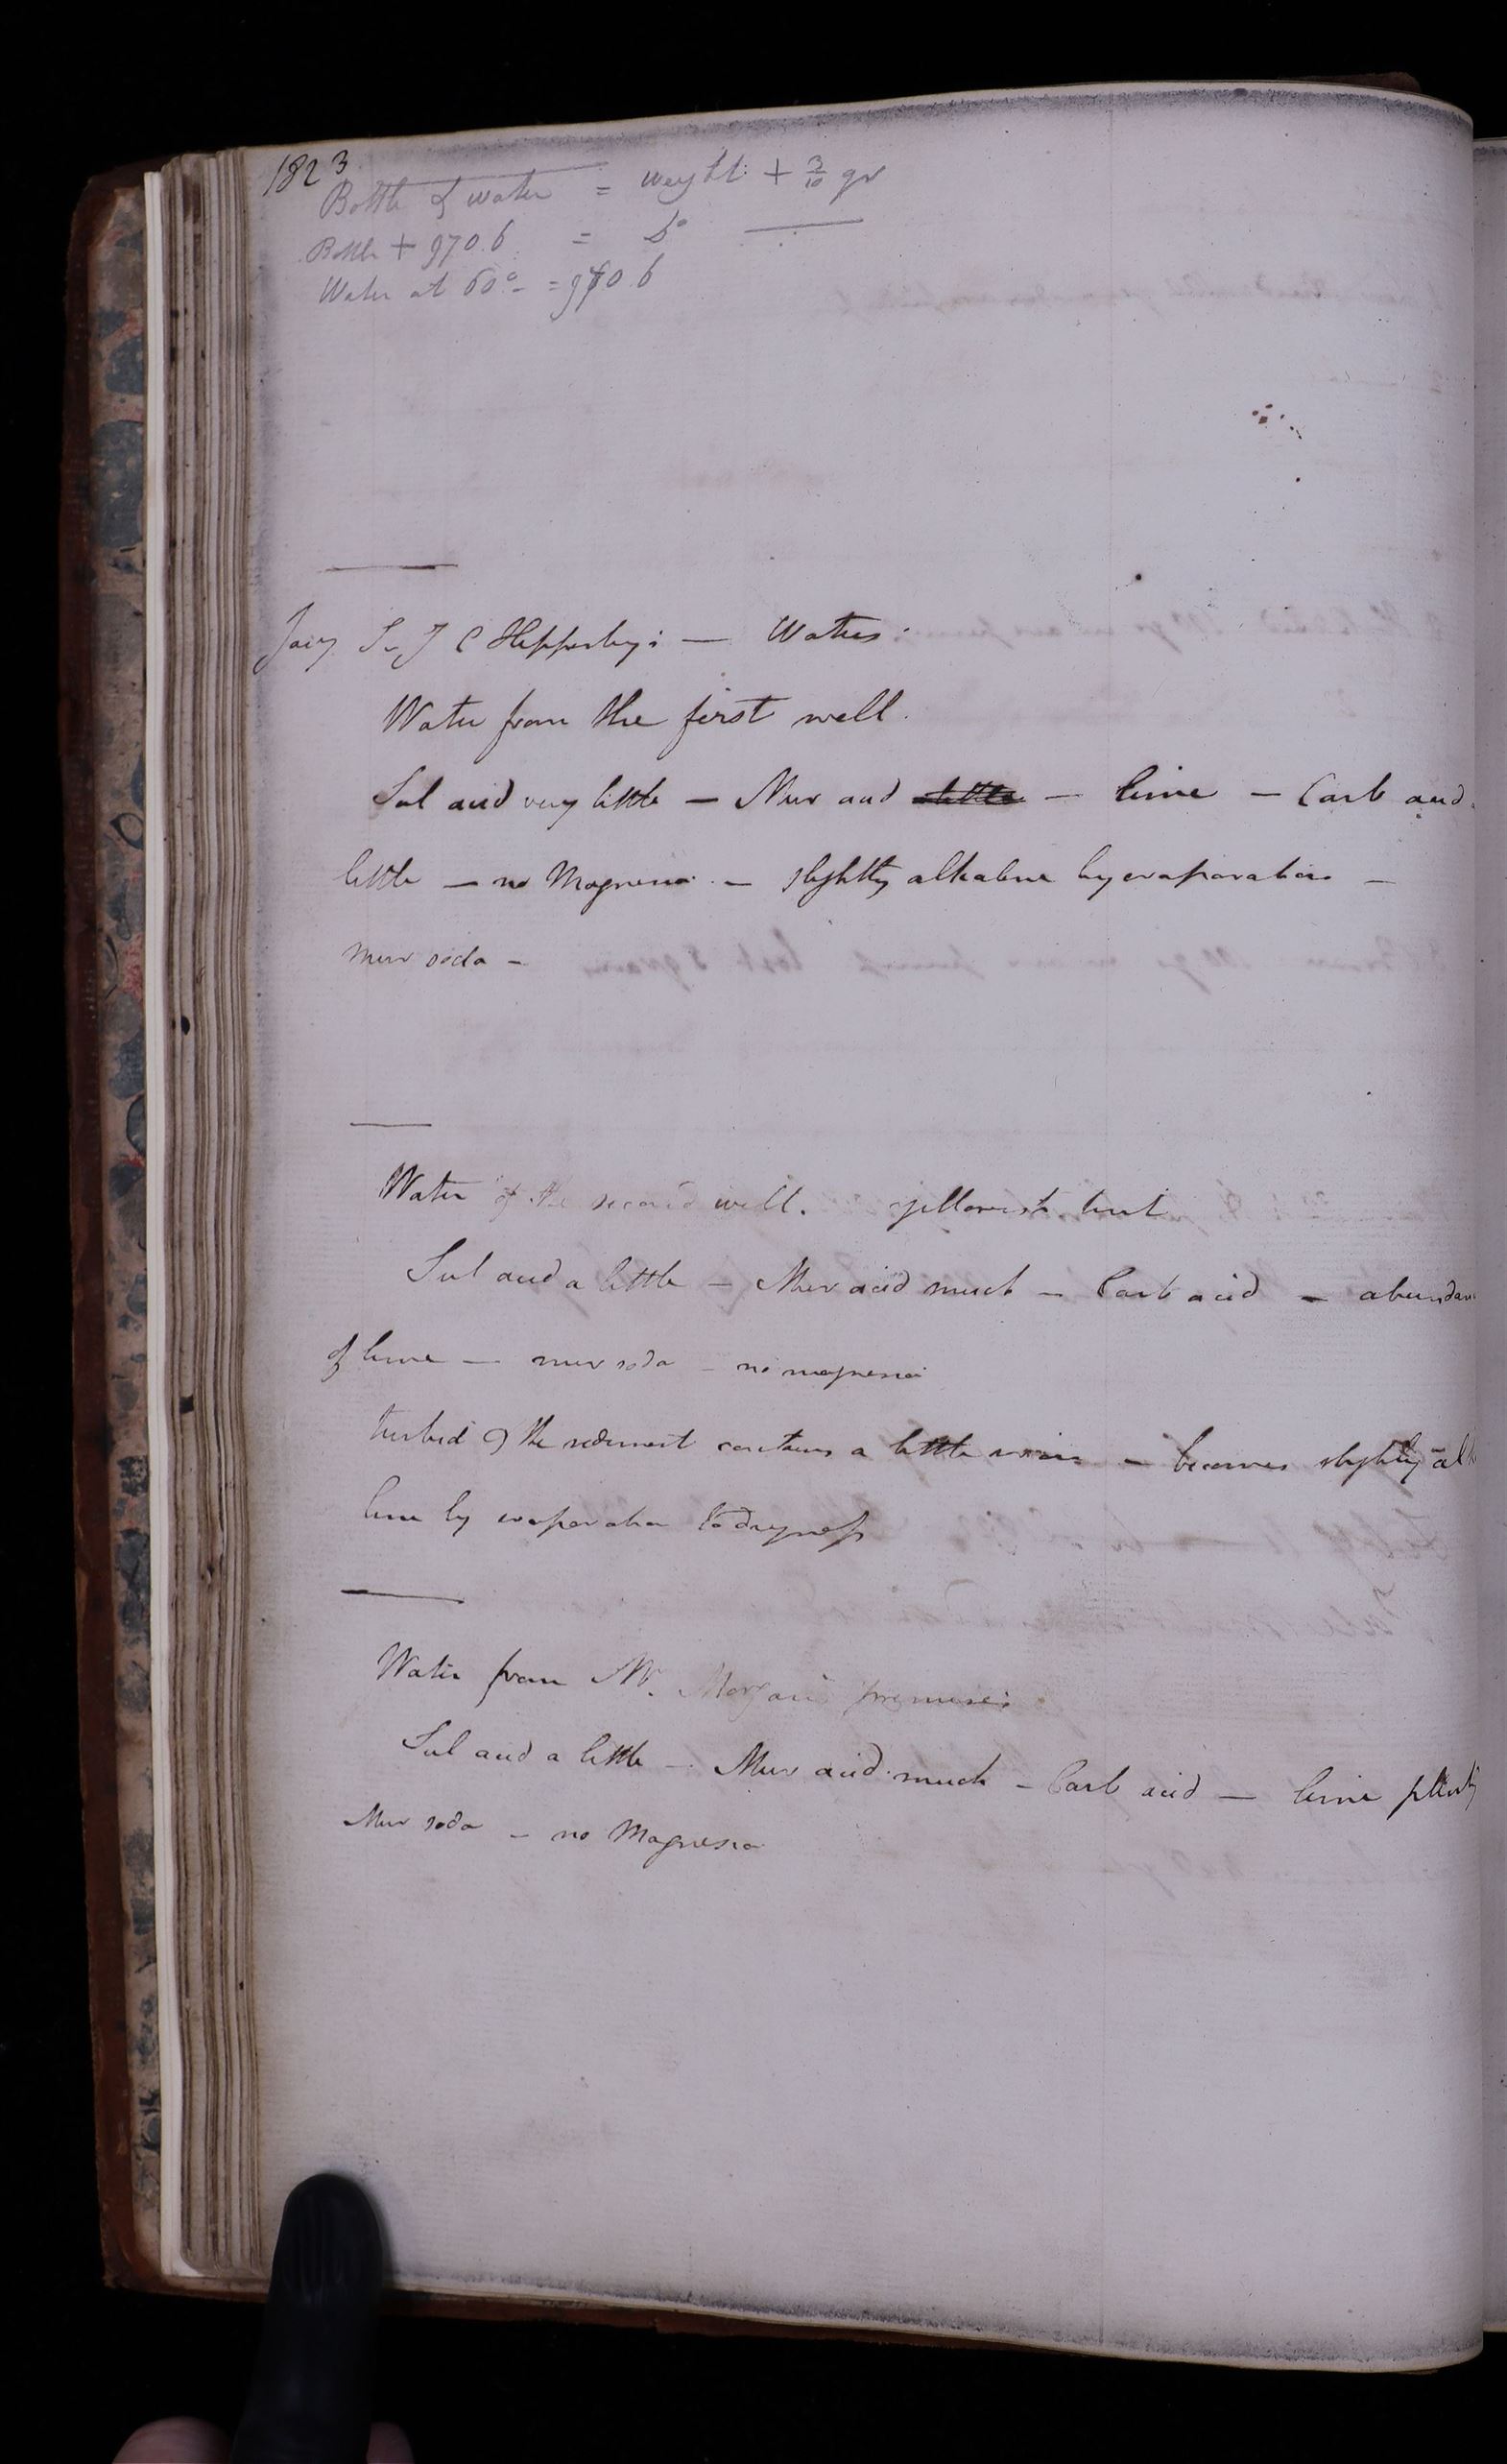 1823
Bottle & water = weight + 3/10 gr
Bottle + 970.6 = Do
Water at 60° = 970.6
Jany Sr J C Hippisley: — Waters:
Water from the first well.
Sul acid very little — Mur acid little — lime — Carb acid
little — no Magnesia — slightly alkaline by evaporation —
mur soda —
Water of the second well. yellowish tint
Sul acid a little — Mur acid much — Carb acid — abundan
of lime — mur soda — no magnesia
turbid & the sediment contains a little — becomes slightly alk
line by evaporation to dryness
Water from Mr. Morgans premises
Sul acid a little — Mur acid much — Carb acid — lime plenty
Mur soda — no Magnesia